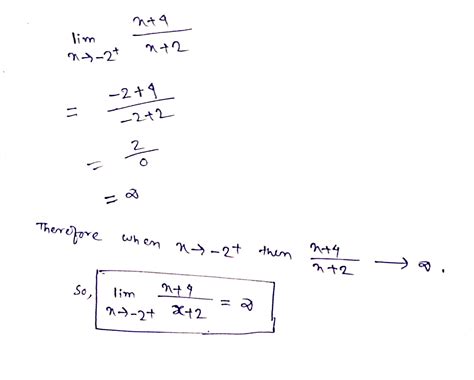 lim x→-2⁺ (x+4)/(x+2)
= (-2+4)/(-2+2)
= 2/0
= ∞
Therefore when x→-2⁺ then (x+4)/(x+2) → ∞.
So, lim x→-2⁺ (x+4)/(x+2) = ∞